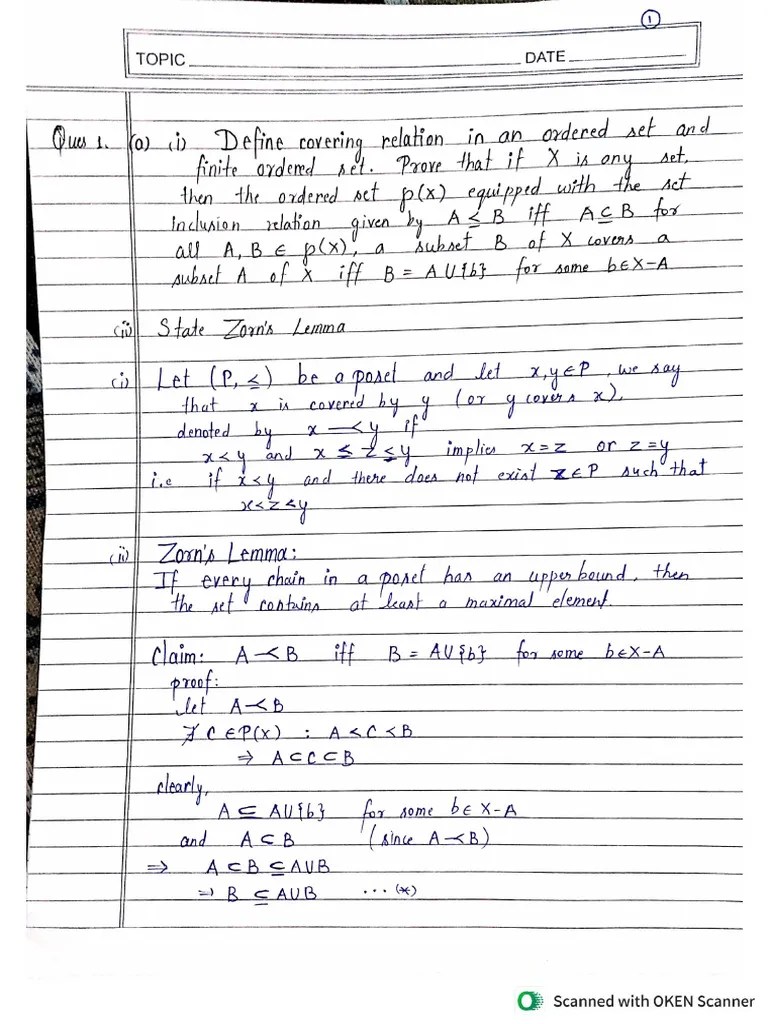 1
TOPIC DATE
Ques 1. (a) (i) Define covering relation in an ordered set and
finite ordered set. Prove that if X is any set,
then the ordered set p(x) equipped with the set
inclusion relation given by A ≤ B iff A ⊆ B for
all A, B ∈ p(x), a subset B of X covers a
subset A of X iff B = A∪{b} for some b∈X-A
(ii) State Zorn's Lemma
(i) Let (P, ≤) be a poset and let x,y∈P, we say
that x is covered by y (or y covers x),
denoted by x ⤙ y if
x<y and x ≤ z ≤ y implies x=z or z=y
i.e if x<y and there does not exist z∈P such that
x<z<y
(ii) Zorn's Lemma:
If every chain in a poset has an upper bound, then
the set contains at least a maximal element.
Claim: A⤙B iff B = A∪{b} for some b∈X-A
proof:
let A⤙B
∄ C∈P(X) : A<C<B
⇒ A⊂C⊂B
clearly,
A ⊆ A∪{b} for some b∈X-A
and A⊂B (since A⤙B)
⇒ A⊂B⊆A∪B
⇒ B⊆A∪B ...(*)
Scanned with OKEN Scanner